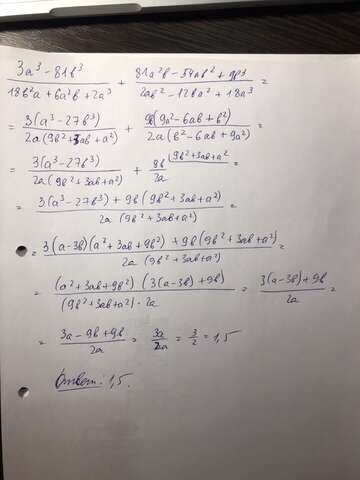 3a³ - 81b³ / 18b²a + 6a²b + 2a³ + 81a²b - 54ab² + 9b³ / 2ab² - 12ba² + 18a³ =
= 3(a³ - 27b³) / 2a(9b² + 3ab + a²) + 9b(9a² - 6ab + b²) / 2a(b² - 6ab + 9a²) =
= 3(a³ - 27b³) / 2a(9b² + 3ab + a²) + 9b / 2a (9b² + 3ab + a² =
= 3(a³ - 27b³) + 9b(9b² + 3ab + a²) / 2a(9b² + 3ab + a²) =
= 3(a - 3b)(a² + 3ab + 9b²) + 9b(9b² + 3ab + a²) / 2a(9b² + 3ab + a²) =
= (a² + 3ab + 9b²)(3(a - 3b) + 9b) / (9b² + 3ab + a²) · 2a = 3(a - 3b) + 9b / 2a =
= 3a - 9b + 9b / 2a = 3a / 2a = 3/2 = 1,5
Ответ: 1,5.